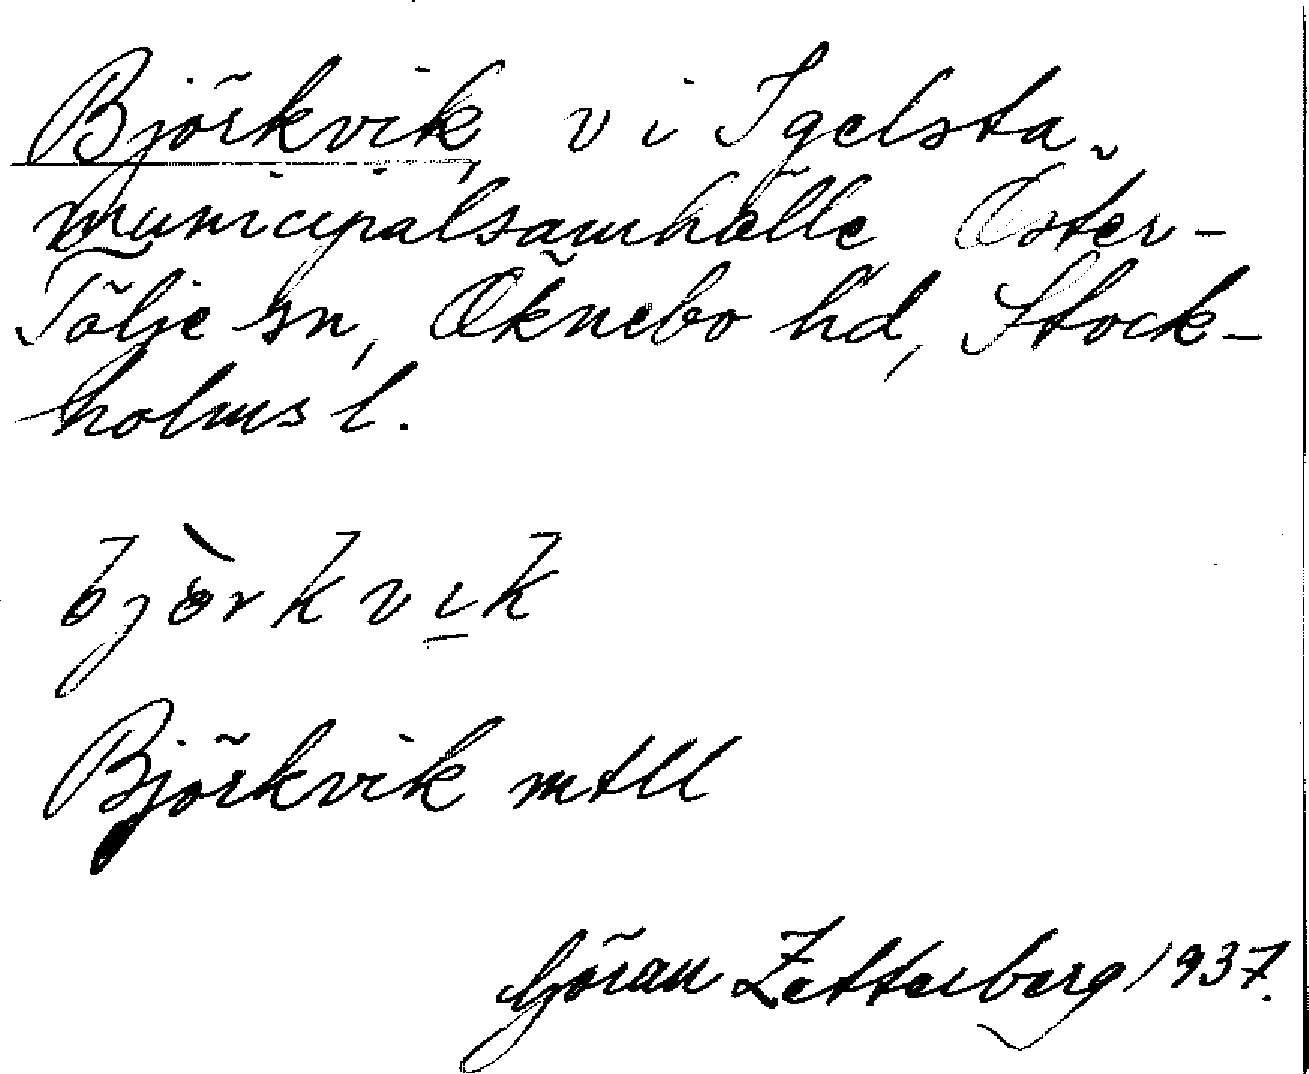 Björkvik, v i Igelsta
municipalsamhälle Öster-
Tälje sn, Öknebo hd, Stock-
holms l.
bjòrkvi̲k
Björkvik mtll
Göran Zetterberg 1937.